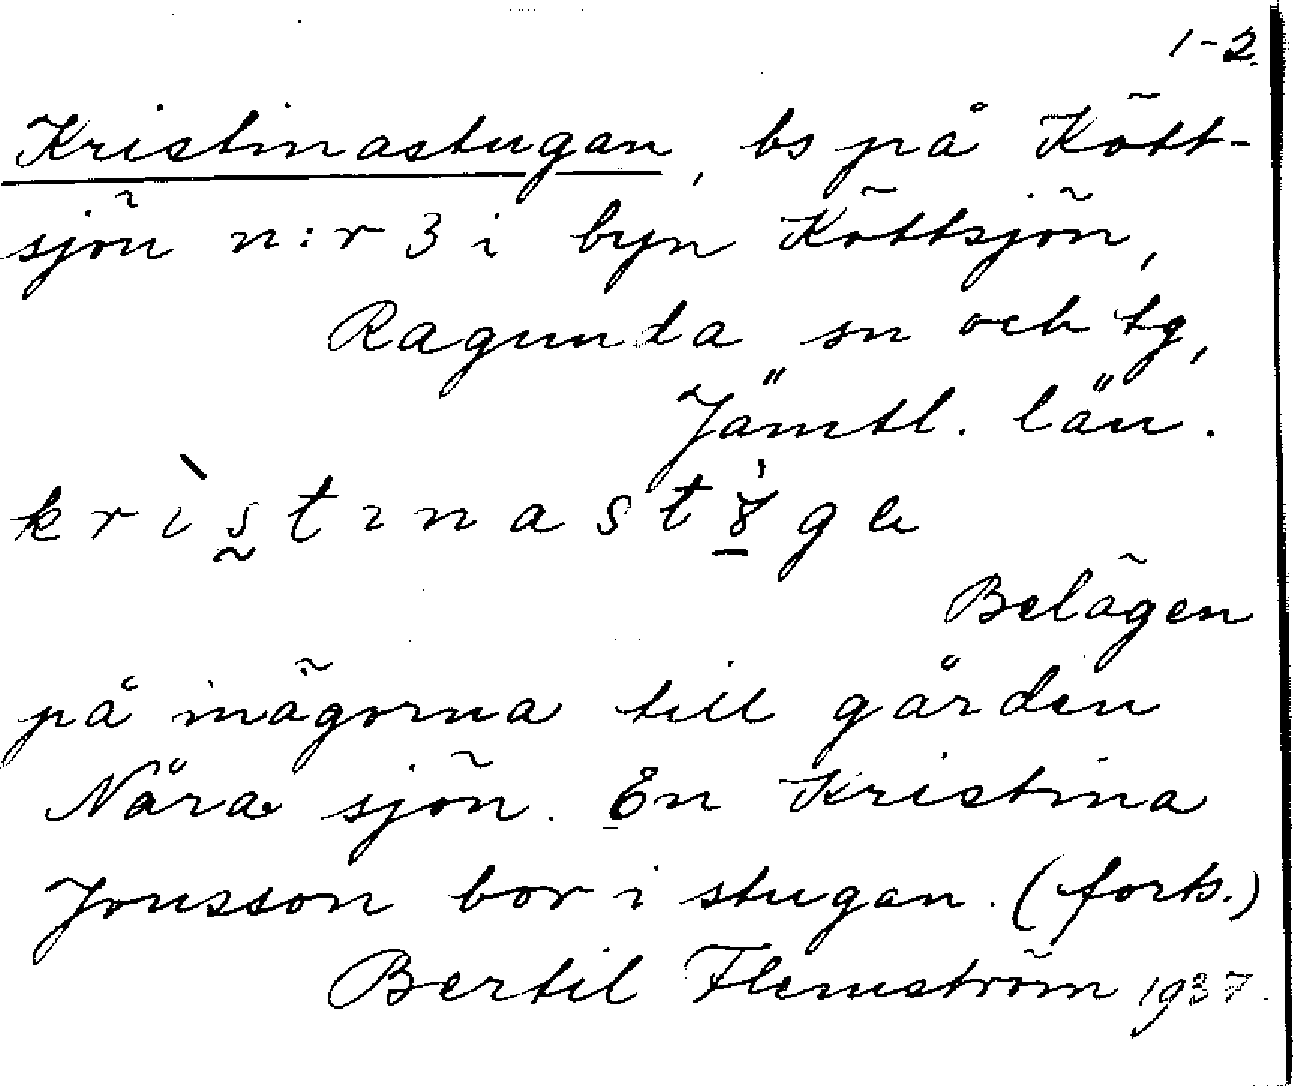 1-2.
Kristinastugan, bs på Kött-
sjön n:r 3 i byn Köttsjön,
Ragunda sn och tg,
Jämtl. län.
Belägen
på inägorna till gården
Nära sjön. En Kristina
Jonsson bor i stugan. (forts.)
Bertil Flemström 1937.